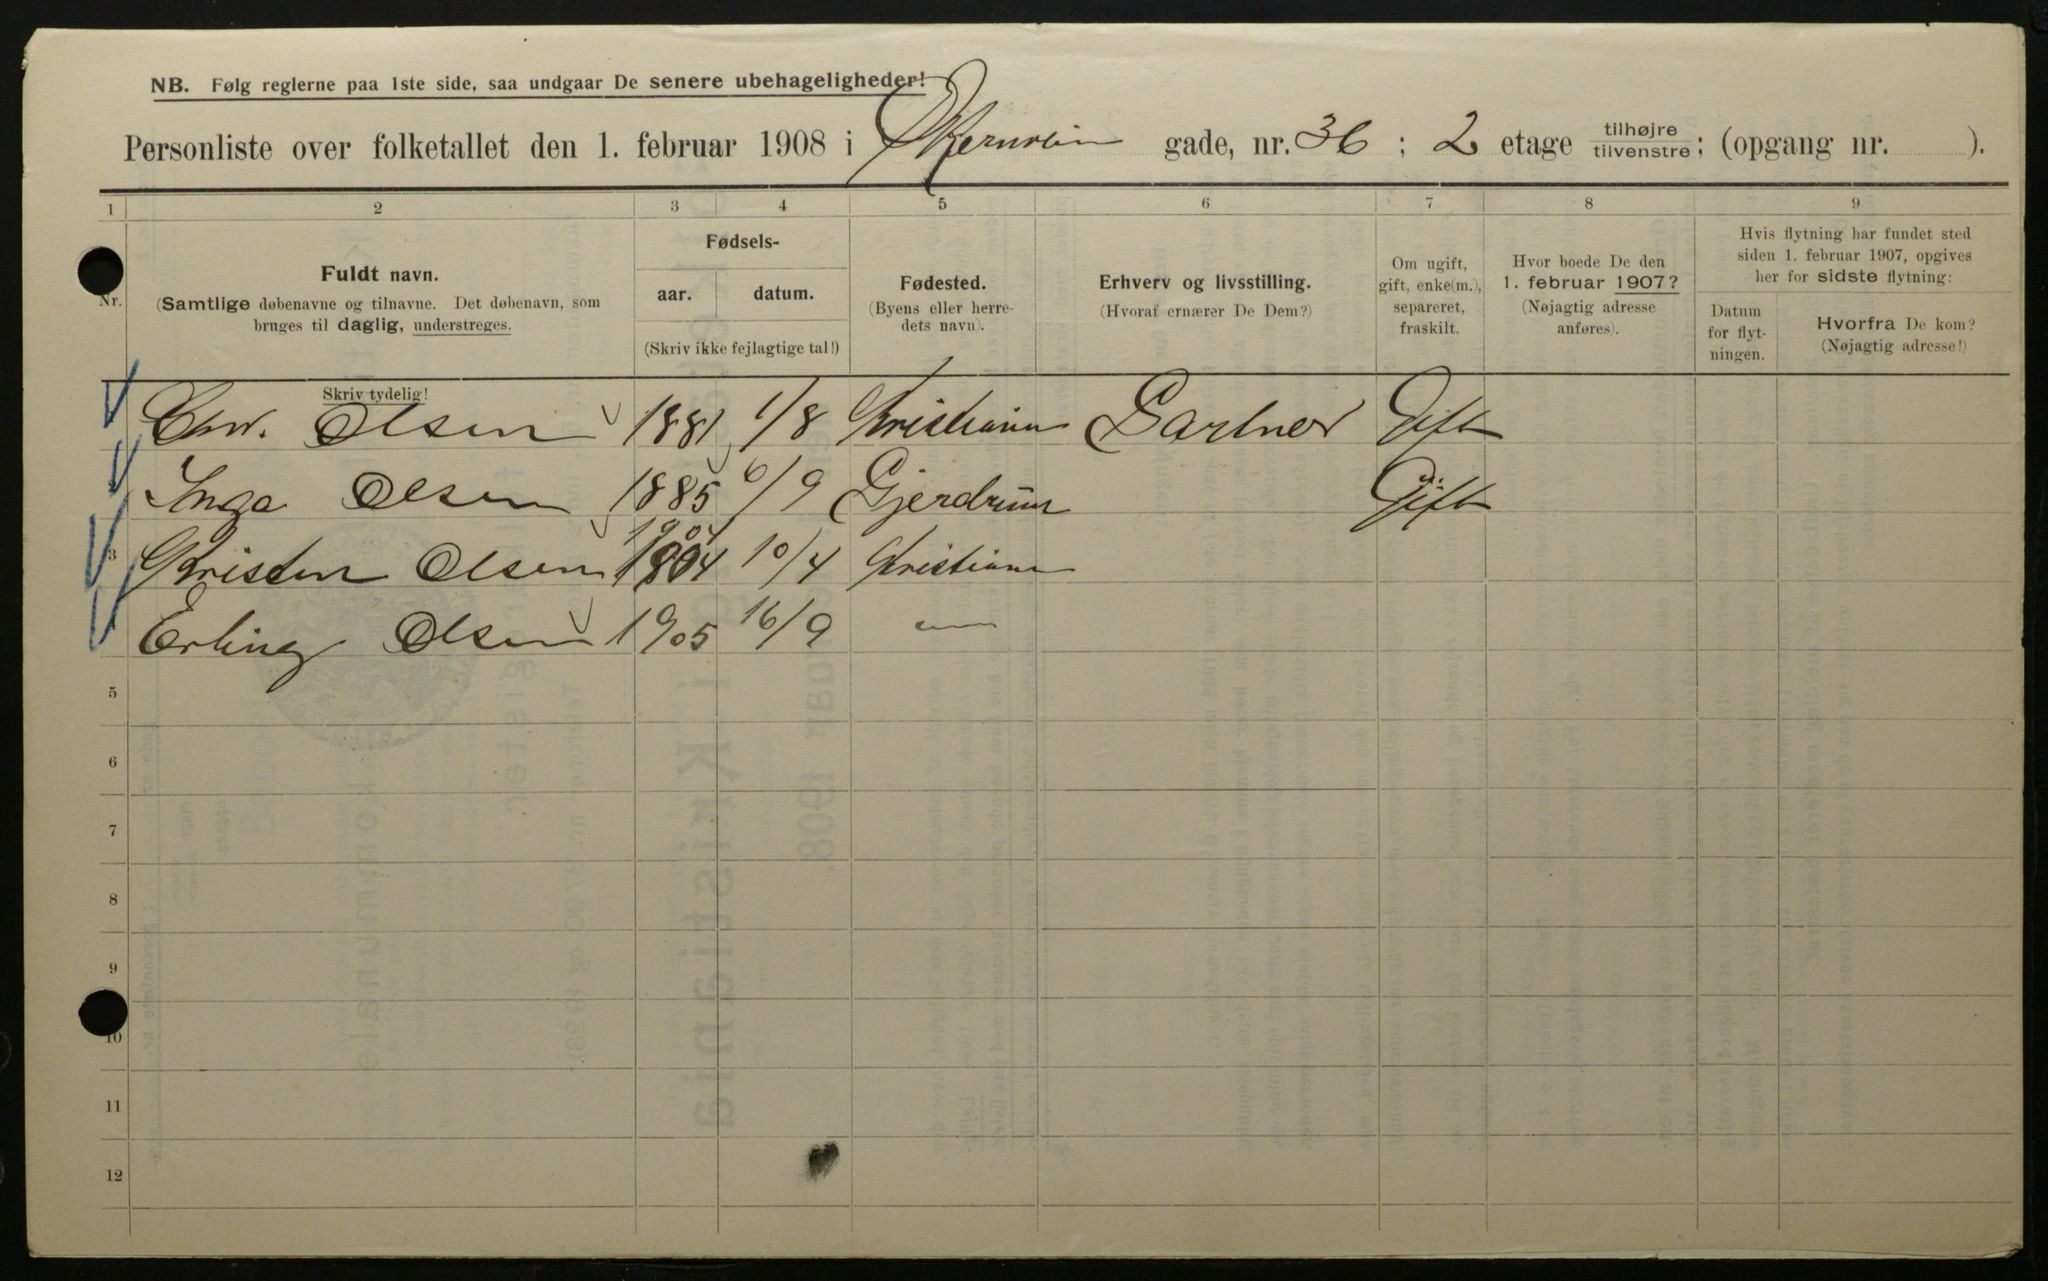 NB. Følg reglerne paa 1ste side, saa undgaar De senere ubehageligheder!
Personliste over folketallet den 1. februar 1908 i Økernvein gade, nr. 36 ; 2 etage tilhøjre tilvenstre; (opgang nr. ).
1 2 3 4 5 6 7 8 9
Nr.
Fuldt navn.
(Samtlige døbenavne og tilnavne. Det døbenavn, som
bruges til daglig, understreges.
Fødsels-
aar. datum.
(Skriv ikke fejlagtige tal!)
Fødested.
(Byens eller herre-
dets navn).
Erhverv og livsstilling.
(Hvoraf ernærer De Dem?)
Om ugift,
gift, enke(m.),
separeret,
fraskilt.
Hvor boede De den
1. februar 1907?
(Nøjagtig adresse
anføres).
Hvis flytning har fundet sted
siden 1. februar 1907, opgives
her for sidste flytning:
Datum
for flyt-
ningen.
Hvorfra De kom?
(Nøjagtig adresse!)
Skriv tydelig!
Chr. Olsen 1881 1/8 Kristiania Gartner Gift
Inga Olsen 1885 6/9 Gjerdrum Gift
1904
3 Kristen Olsen 1904 10/4 Kristiania
4 Erling Olsen 1905 16/9 —"—
5
6
7
8
9
10
11
12